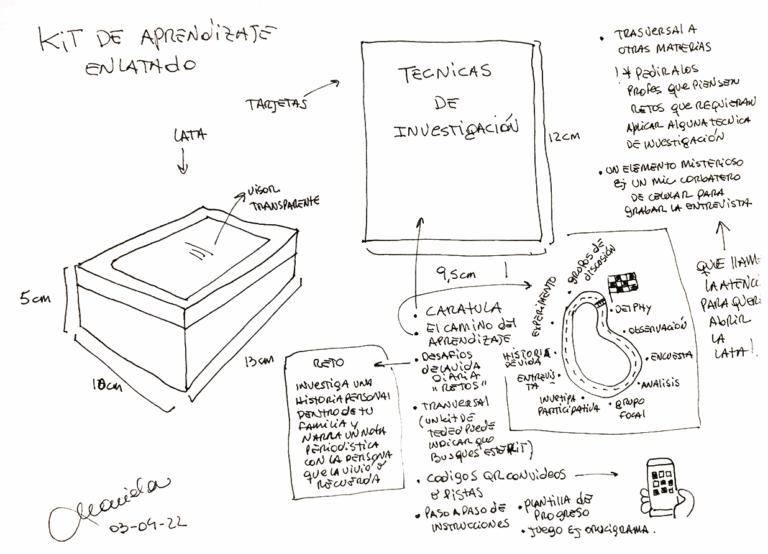 KIT DE APRENDIZAJE
ENLATADO
TARJETAS
LATA
VISOR
TRANSPARENTE
5cm
10cm
13cm
TECNICAS
DE
INVESTIGACIÓN
12cm
9,5cm
• TRASVERSAL A
OTRAS MATERIAS
PEDIR A LOS
PROFES QUE PIENSEN
RETOS QUE REQUIERAN
APLICAR ALGUNA TECNICA
DE INVESTIGACIÓN
• UN ELEMENTO MISTERIOSO
Ej UN MIC CORBATERO
DE CELULAR PARA
GRABAR LA ENTREVISTA
QUE LLAME
LA ATENCI
PARA QUER
ABRIR
LA
LATA!
• CARATULA
• EL CAMINO DEL
APRENDIZAJE
• DESAFIOS
DE LA VIDA
DIARIA
"RETOS"
• TRANVERSAL
(UN KIT DE
PUEDE
INDICAR QUE
BUSQUES ESTE KIT)
• CODIGOS QR CON VIDEOS
O PISTAS
• PASO A PASO DE
INSTRUCCIONES
• PLANTILLA DE
PROGRESO
• JUEGO Ej CRUCIGRAMA.
RETO
INVESTIGA UNA
HISTORIA PERSONAL
DENTRO DE TU
FAMILIA Y
NARRA UN NOTA
PERIODISTICA
CON LA PERSONA
QUE LA VIVIÓ O
RECUERDA
GRUPOS DE
DISCUSIÓN
EXPERIMENTO
HISTORIA
DE VIDA
ENTREVIS
TA
PARTICIPATIVA
GRUPO
FOCAL
ANALISIS
• ENCUESTA
• OBSERVACIÓN
• DELPHY
03-04-22